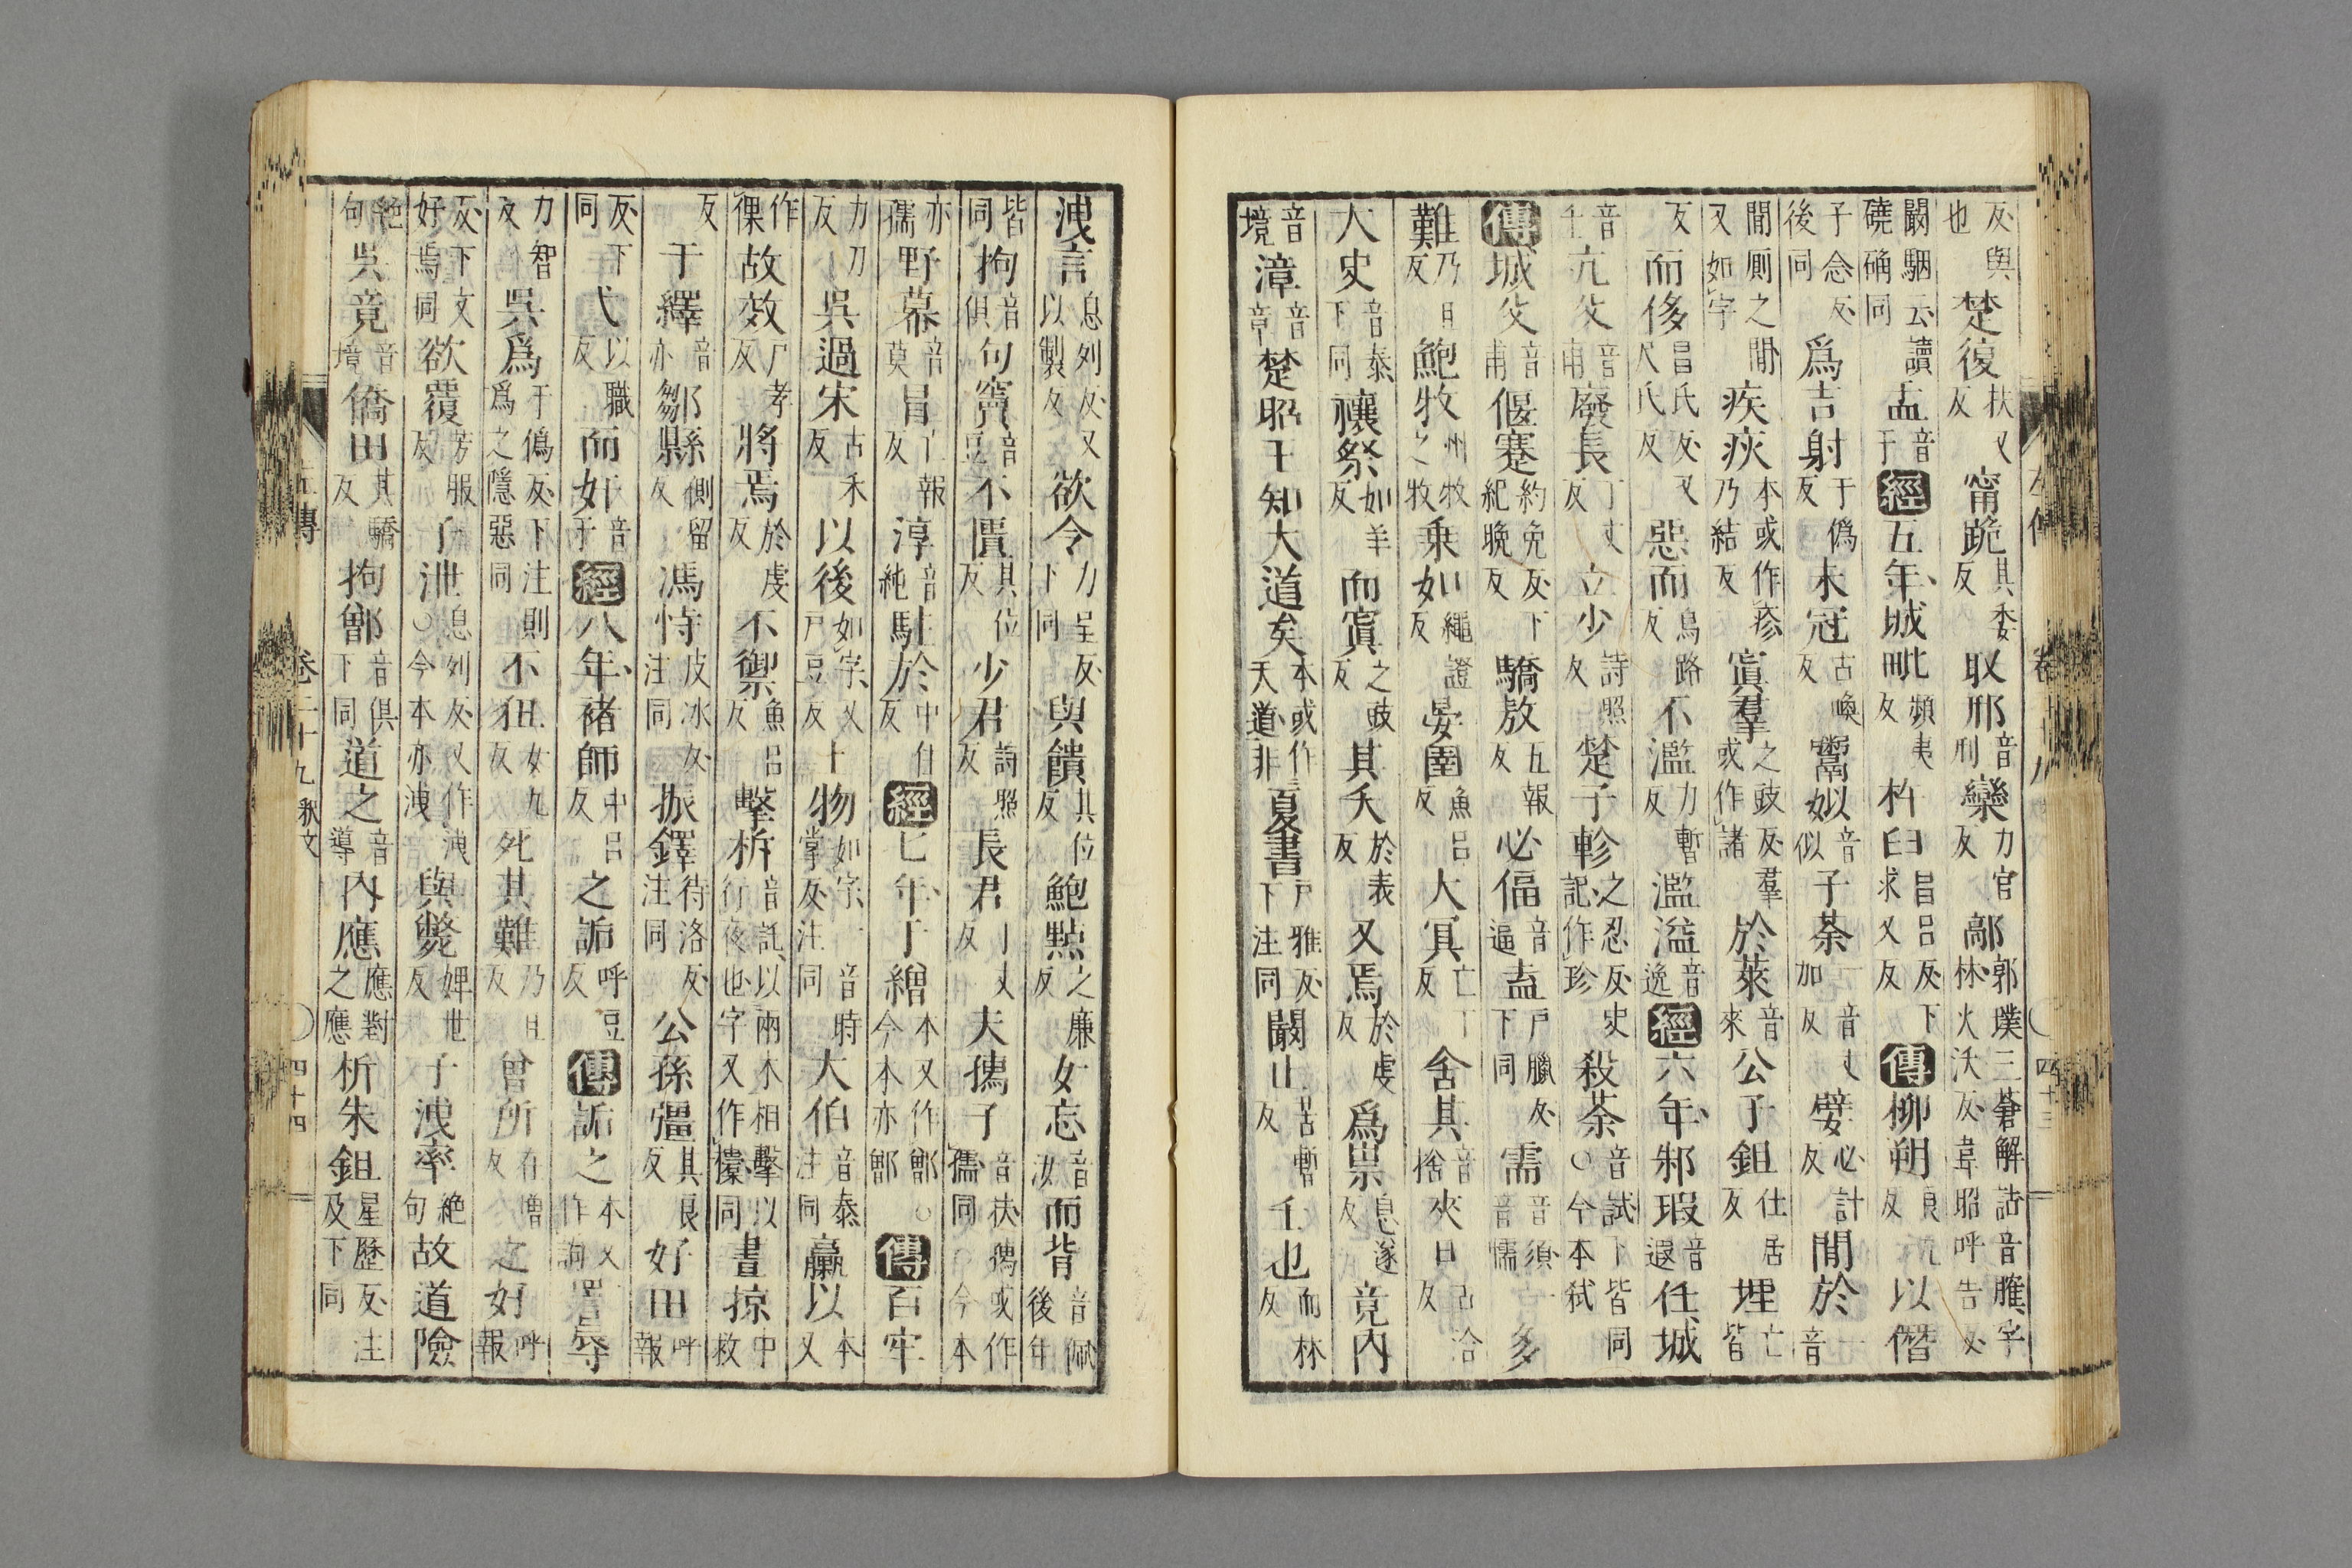 反與也楚復扶又反甯跪其委反取邢音刑欒力官反鄗郭璞三蒼解詁音臛字林火沃反韋昭呼告反
闞駰云讀磽确同盂音于經五年城毗頻夷反杵臼昌呂反下求又反傳柳朔以僭
子念反後同爲吉射于僞反未冠古喚反鬻姒音似子荼音反加嬖必計反閒於音
閒厠之閒又如字疾疢本或作疹乃結反寘羣之豉反羣或作諸於萊音來公子鉏仕居反埋亡皆
反而侈昌氏反又尺氏反惡而烏路反不濫力暫反濫溢音逸經六年邾瑕音遐任城
音壬亢父音甫廢長丁丈反立少詩照反楚子軫之忍反史記作珍殺荼音試下皆同○今本弑
傳城父音甫偃蹇約免反下紀晚反驕敖五報反必偪音逼盍戶臘反下同需音須一音懦多
難乃旦反鮑牧州牧之牧乘如繩證反晏圉魚呂反大冥亡丁反舍其音捨夾日古洽反
大史音泰下同禳祭如羊反而寘之豉反其夭於表反又焉於虔反爲祟息遂反竟內
音境漳音章楚昭王知大道矣本或作天道非夏書戶雅反下注同闞止苦暫反壬也而林反
洩言息列反又以製反欲令力呈反下同與饋其位反鮑點之廉反女忘音汝而背音佩後年
皆同拘音俱句竇音豆不匱其位反少君詩照反長君丁丈反夫孺子音扶孺或作𡦗同今本
亦孺野幕音莫冒亡報反淳音純駐於中住反經七年于繒本又作鄫今本亦鄫○傳百牢
力刀反吳過宋古禾反以後如字又戶豆反十物如字一音時掌反注同大伯音泰注同羸以本又
作倮故效戶孝反將焉於虔反不禦魚呂反擊柝音託以兩木相擊以行夜也字又作㯓同晝掠中救
反于繹音亦鄒縣側留反馮恃皮冰反注同振鐸待洛反注同公孫彊其良反好田呼報
反下同弋以職反而如音于經八年褚師中呂反之詬呼豆反傳詬之本又作詢詈辱
力智反吳爲于僞反下注則爲之隱惡同不狃女九反死其難乃旦反曾所在增反之好呼報
反下文好焉同欲覆芳服反子泄息列反又作洩○今本亦洩與斃婢世反子洩率絶句故道險
絶句吳竟音境僑田其驕反拘鄫音俱下同道之音導內應應對之應析朱鉏星歷反注及下同